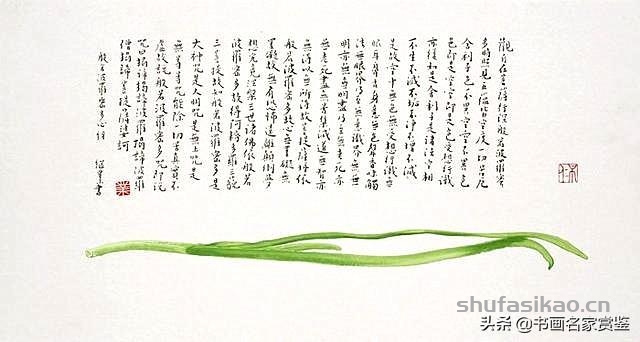 觀自在菩薩行深般若波羅蜜
多時照見五蘊皆空度一切苦厄
舍利子色不異空空不異色
色即是空空即是色受想行識
亦復如是舍利子是諸法空相
不生不滅不垢不淨不增不減
是故空中無色無受想行識無
眼耳鼻舌身意無色聲香味觸
法無眼界乃至無意識界無無
明亦無無明盡乃至無老死亦
無老死盡無苦集滅道無智亦
無得以無所得故菩提薩埵依
般若波羅蜜多故心無罣礙無
罣礙故無有恐怖遠離顛倒夢
想究竟涅槃三世諸佛依般若
波羅蜜多故得阿耨多羅三藐
三菩提故知般若波羅蜜多是
大神咒是大明咒是無上咒是
無等等咒能除一切苦真實不
虛故說般若波羅蜜多咒即說
咒曰揭諦揭諦波羅揭諦波羅
僧揭諦菩提薩婆訶
般若波羅蜜多心經
書
業
shufasikao.cn
头条 @书画名家赏鉴